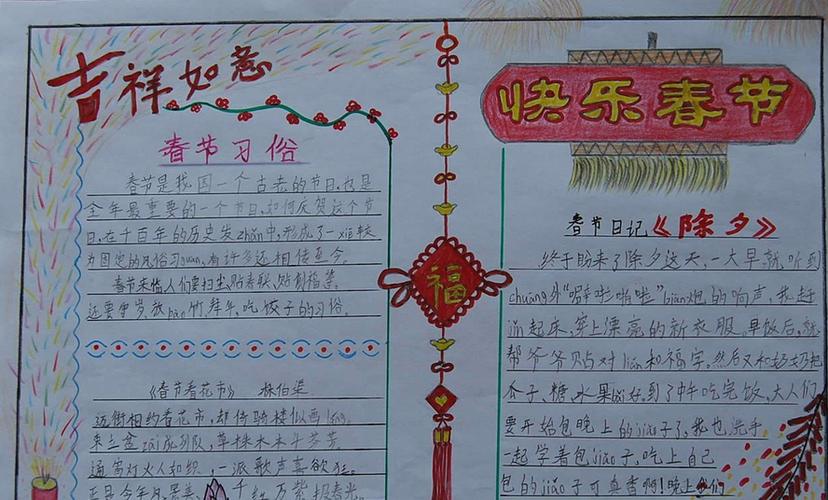 吉祥如意
春节习俗
春节是我国一个古老的节日,也是
全年最重要的一个节日,如何庆贺这个节
日,在千百年的历史发zhǎn中,形成了一xiē较
为固定的风俗习guàn,有许多还相传至今。
春节来临人们要扫尘,贴春联,贴剪福等。
还要守岁,放pào竹,拜年,吃饺子的习俗。
《春节看花市》 林伯渠
迈街相约看花市,却倚骑楼似画láng。
束立盆zāi成列队,草株木本斗芬芳
通宵灯火人如织,一派歌声喜欲狂。
正是今年风景美,千红万紫报春光。
福
快乐春节
春节日记《除夕》
终于盼来了除夕这天,一大早就听到
chuāng外“噼啪啦啦”biān炮的响声,我赶
jǐn起床,穿上漂亮的新衣服。早饭后,就
帮爷爷贴对lián和福字,然后又和奶奶把
瓜子、糖、水果bǎi好。到了中午吃完饭,大人们
要开始包晚上的jiǎo子了,我也洗手
一起学着包jiǎo子,吃上自己
包的jiǎo子可真香啊!晚上我们